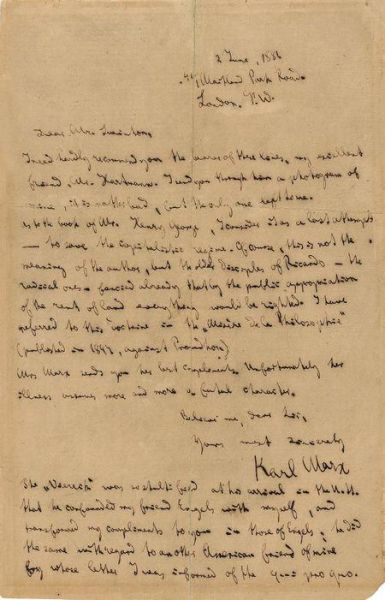 2 June, 1881
41, Maitland Park Road
London. N.W.
Dear Mr. Swinton,
I need hardly recommend you the bearer of these lines, my excellent
friend, Mr. Hartmann. I send you through him a photogram of
mine; it is rather bad, but the only one left me.
As to the book of Mr. Henry George, I consider it as a last attempt
— to save the capitalistic regime. Of course, this is not the
meaning of the author, but the older disciples of Ricardo — the
radical ones — fancied already that by the public appropriation
of the rent of land everything would be righted. I have
referred to this doctrine in the „Misère de la Philosophie"
(published in 1847, against Proudhon).
Mrs Marx sends you her best compliments. Unfortunately her
illness assumes more and more a fatal character.
Believe me, dear Sir,
Yours most sincerely
Karl Marx
The „Viereck" was so stultified at his arrival in the U. St.
that he confounded my friend Engels with myself, and
transformed my compliments to you in those of Engels; he did
the same with regard to another American friend of mine
by whose letter I was informed of the qui pro quo.